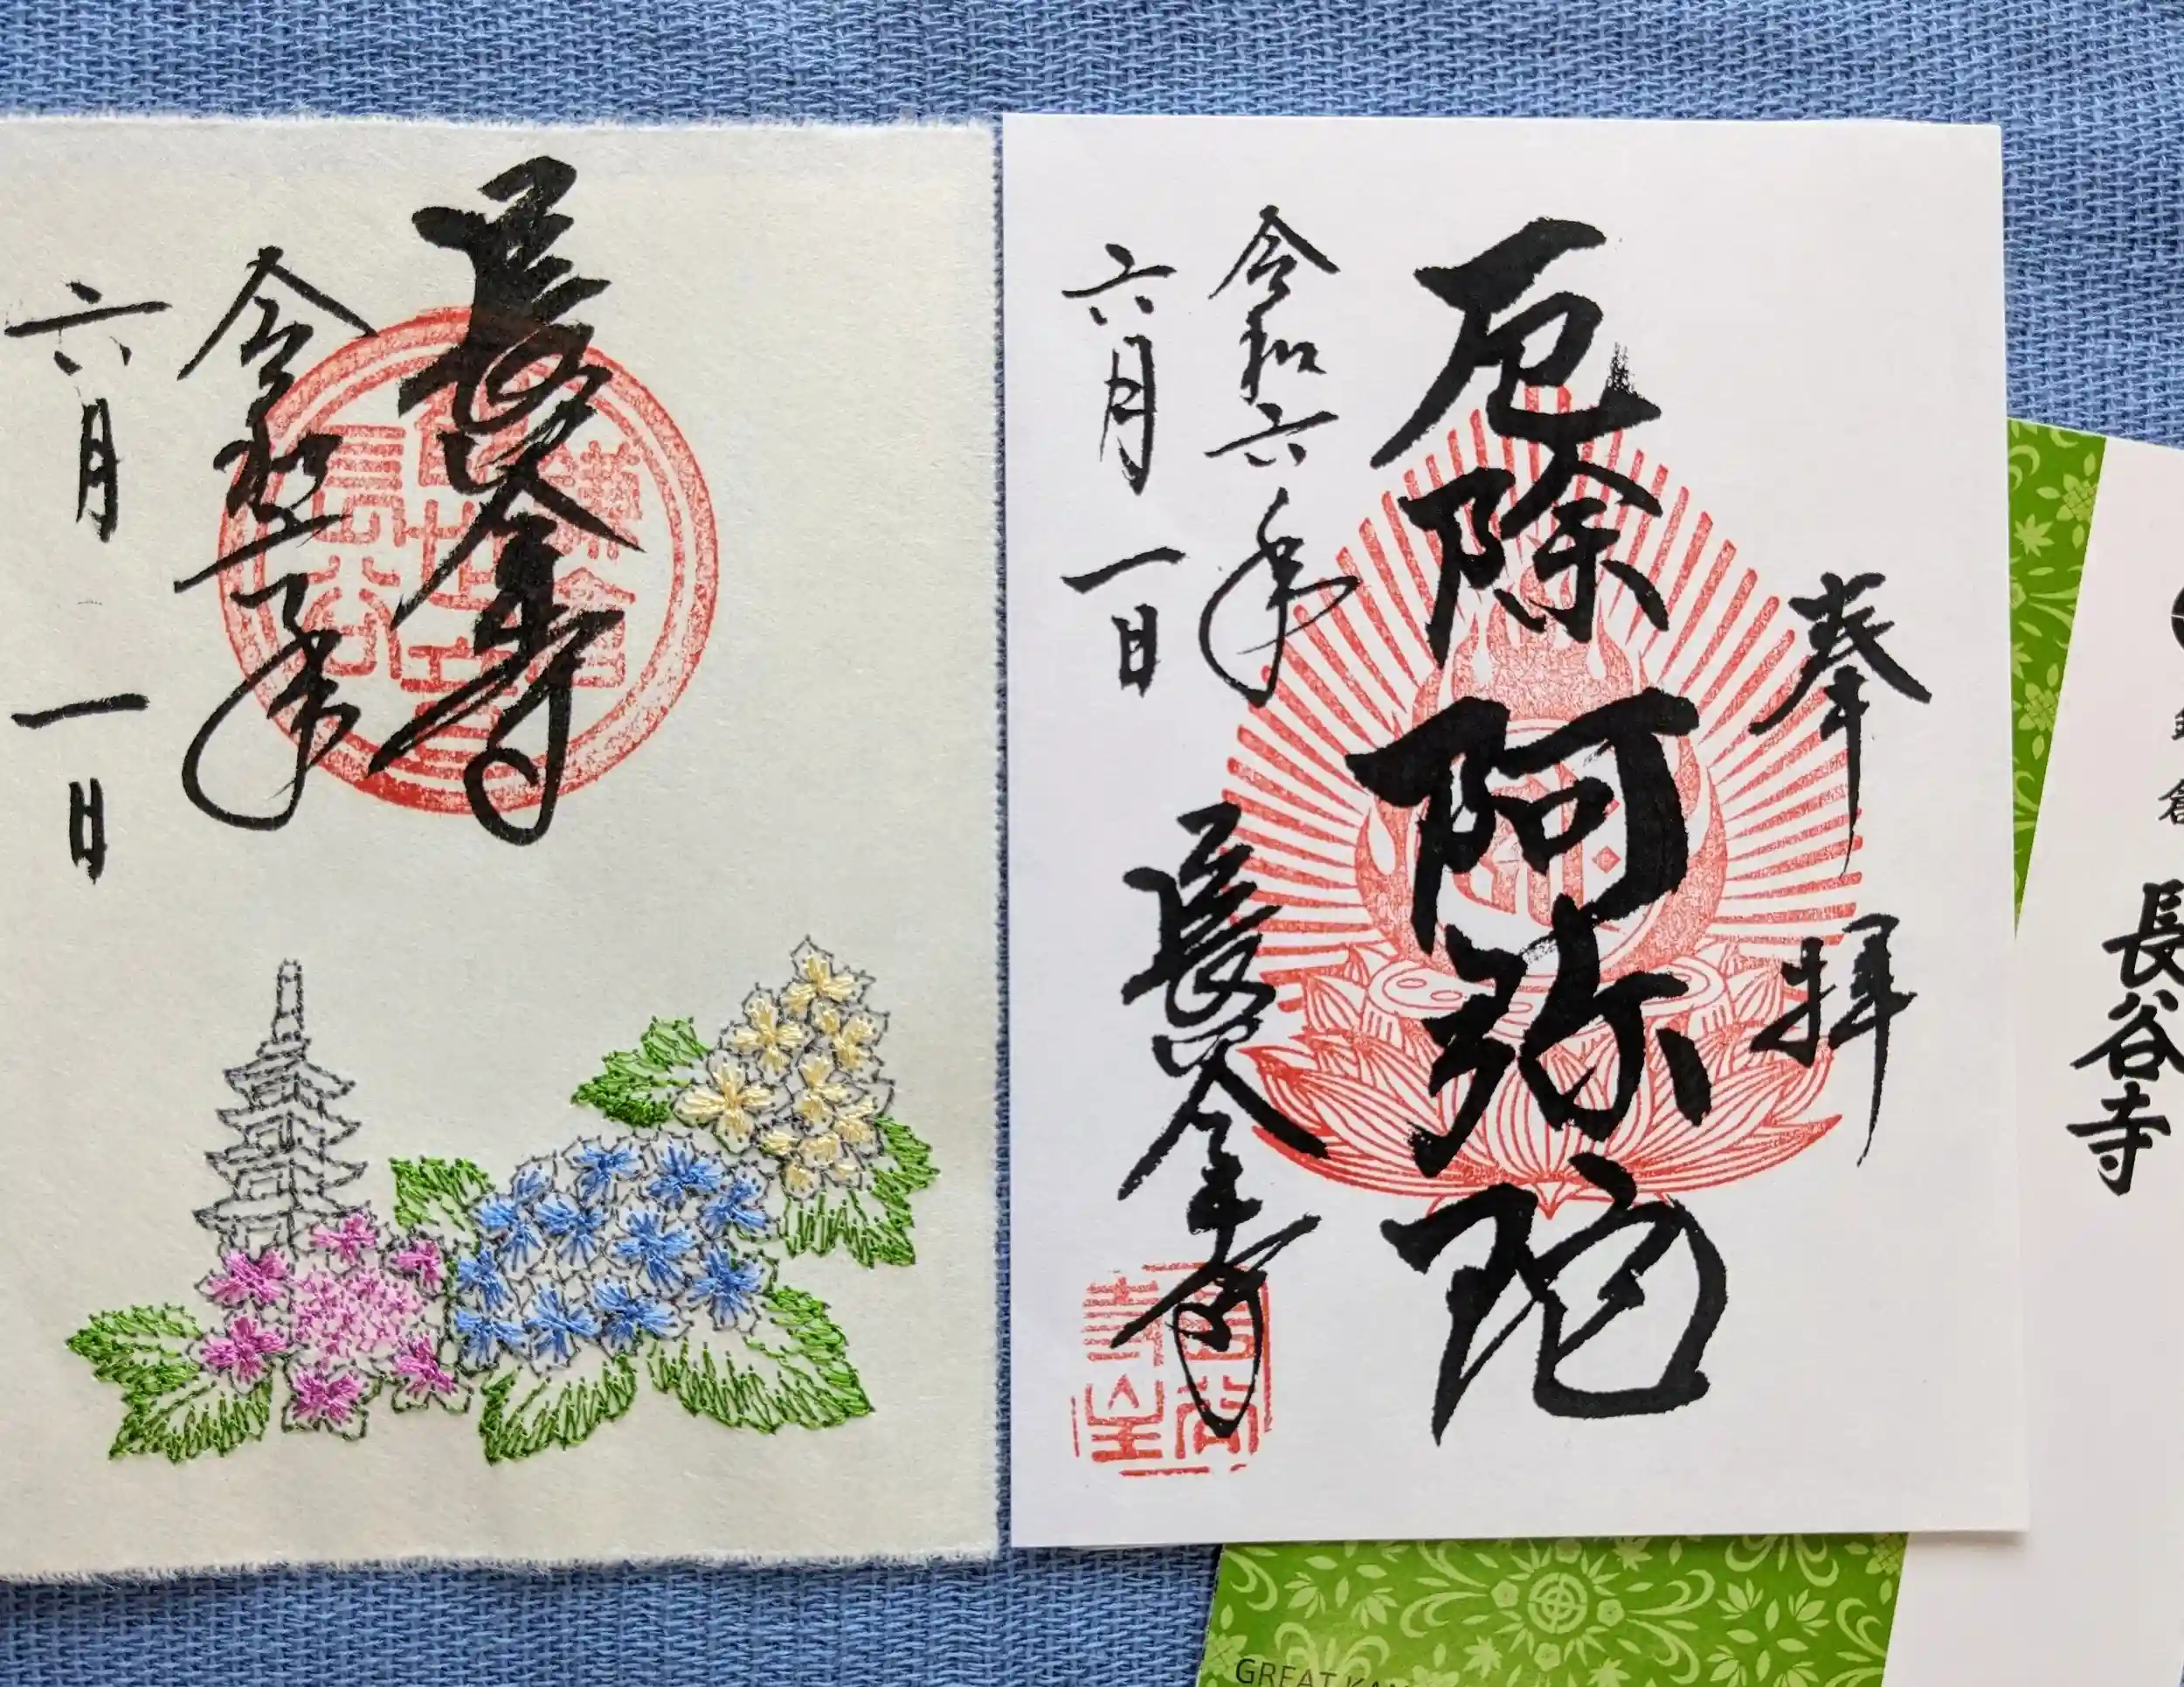 長谷寺
令和六年
六月一日
奉拝
厄除阿弥陀
令和六年
六月一日
長谷寺
長谷寺
GREAT